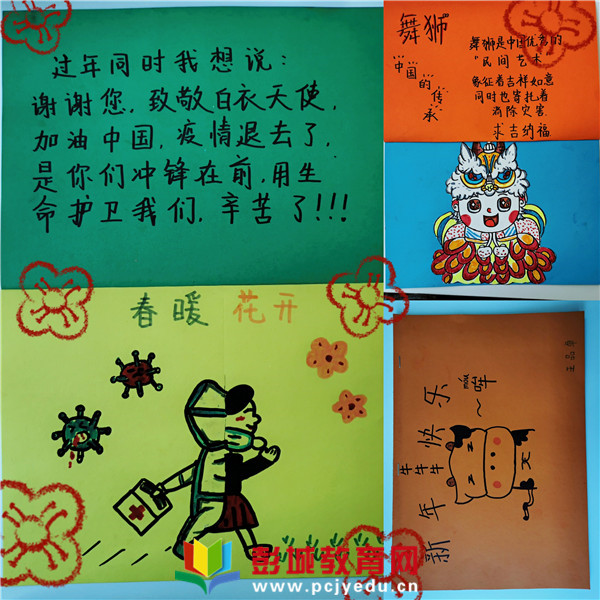 过年同时我想说:
谢谢您,致敬白衣天使,
加油中国,疫情退去了,
是你们冲锋在前,用生
命护卫我们,辛苦了!!!
舞狮
中国的传承
舞狮是中国优秀的
"民间艺术
象征着吉祥如意
同时也寄托着
消除灾害
求吉纳福
春暖花开
新年快乐
牛牛牛
哞~
彭城教育网
www.pcjyedu.cn